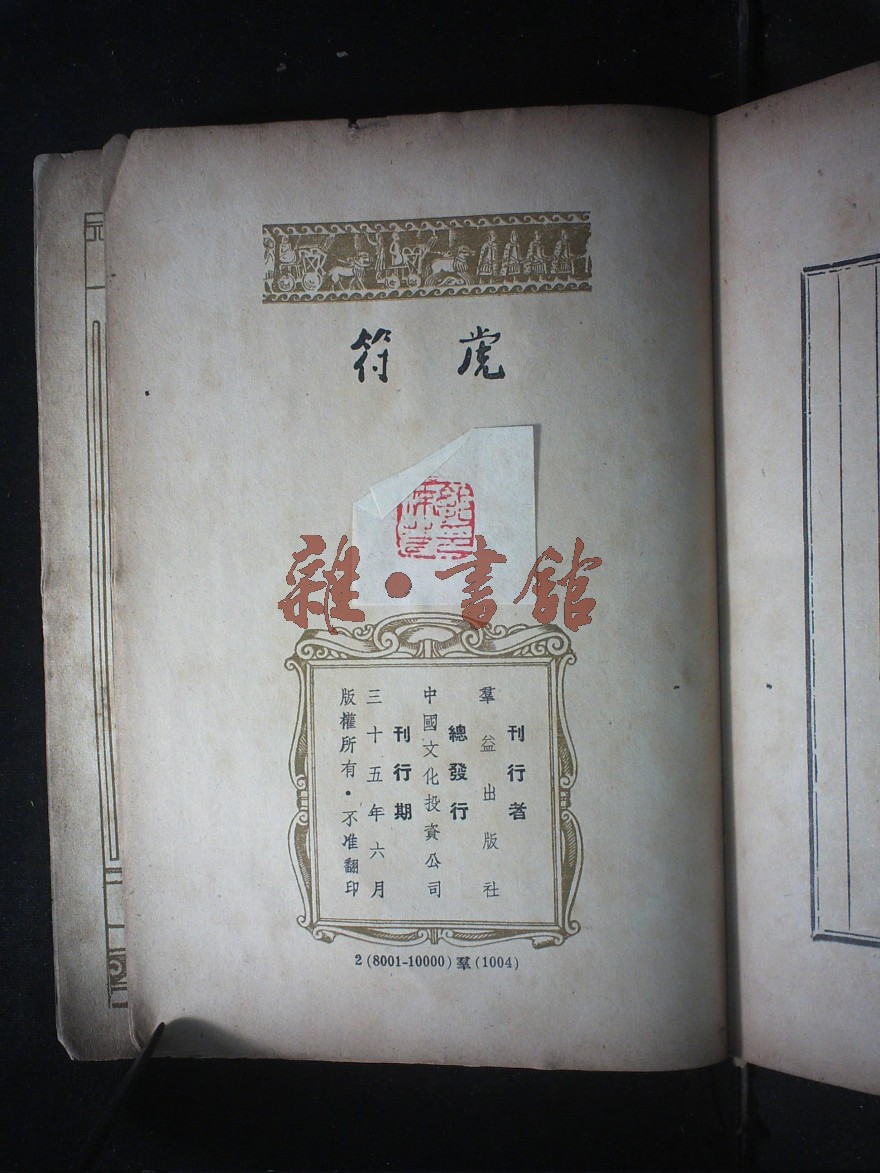 虎符
雜·書館
刊行者
羣益出版社
總發行
中國文化投資公司
刊行期
三十五年六月
版權所有·不准翻印
2(8001-10000)羣(1004)